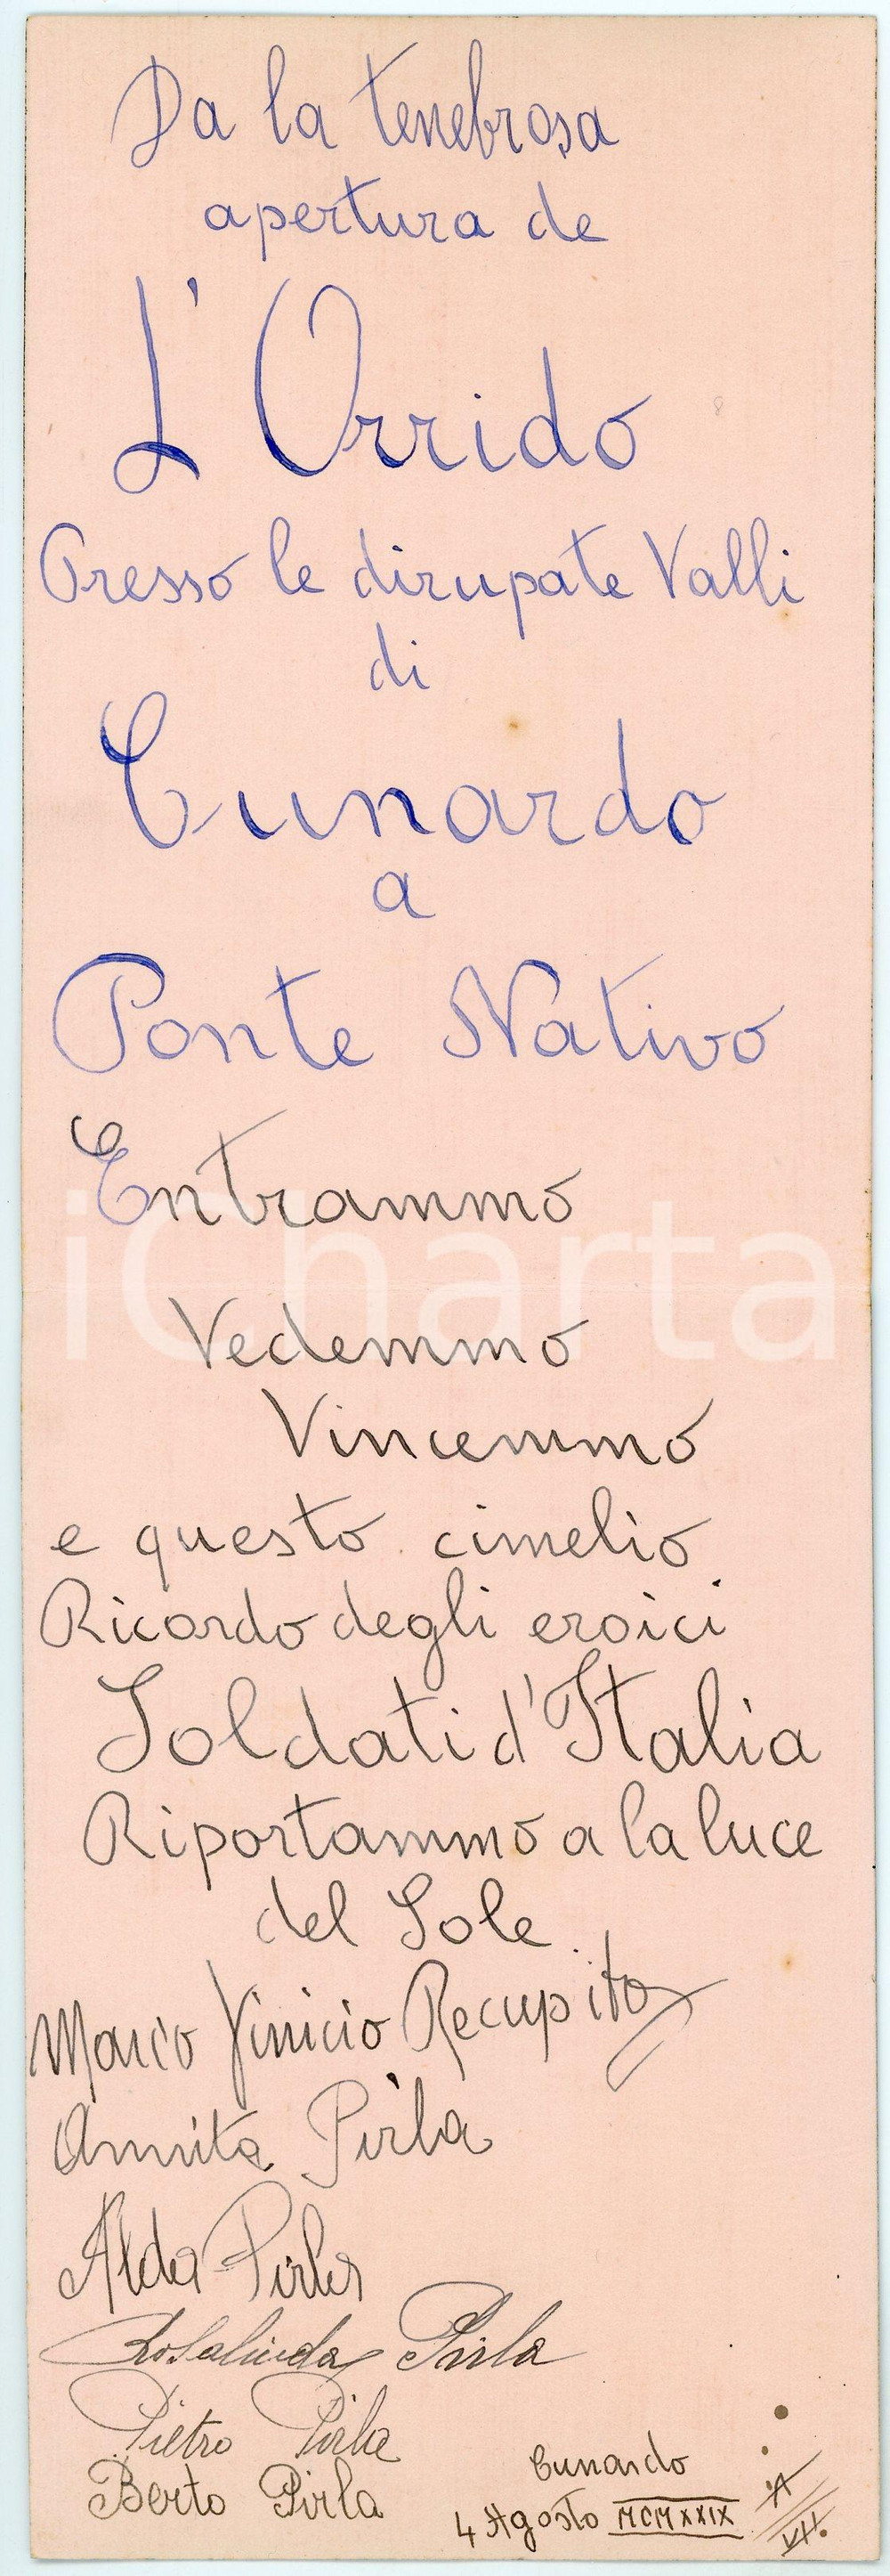 Da la tenebrosa
apertura de
L'Orrido
Presso le dirupate Valli
di
Cunardo
a
Ponte Nativo
Entrammo
iCharta
Vedemmo
Vincemmo
e questo cimelio
Ricordo degli eroici
Soldati d'Italia
Riportammo a la luce
del Sole.
Marco Vinicio Recupito
Annita Pirla
Alda Pirla
Rosalinda Pirla
Pietro Pirla
Berto Pirla
Cunardo
4 Agosto MCMXXIX
A
VII.